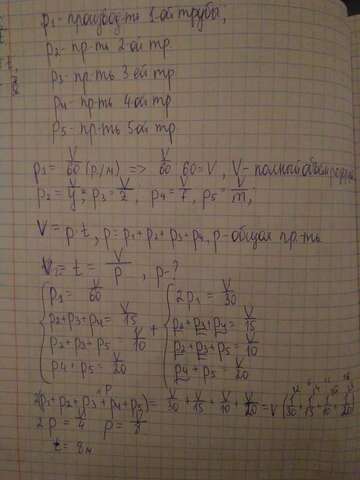 p₁ - производ-ть 1-ой трубы;
p₂ - пр-ть 2-ой тр.
p₃ - пр-ть 3-ей тр
p₄ - пр-ть 4-ой тр
p₅ - пр-ть 5-ой тр.
p₁ = V/60 (p/м) => V/60 · 60 = V, V - полный объём
p₂ = V/y; p₃ = V/z, p₄ = V/7, p₅ = V/m;
V = p·t, p = p₁ + p₂ + p₃ + p₄, p - общая пр-ть.
t = V/p, p - ?
{ p₁ = V/60 { 2p₁ = V/30
p₂ + p₃ + p₄ = V/15 + p₂ + p₃ + p₄ = V/15
p₂ + p₃ + p₅ = V/10 p₂ + p₃ + p₅ = V/10
p₄ + p₅ = V/20 p₄ + p₅ = V/20
2(p₁ + p₂ + p₃ + p₄ + p₅) = V/30 + V/15 + V/10 + V/20 = V (1/30 + 1/15 + 1/10 + 1/20)
2p = V/4 p = V/8
t = 8м